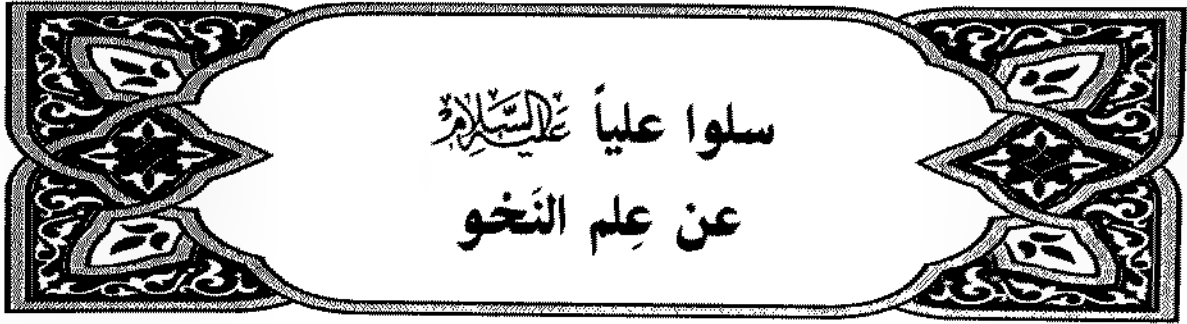 سلوا علياً عَلَيْهِ السَّلَامُ
عن عِلم النَحْو